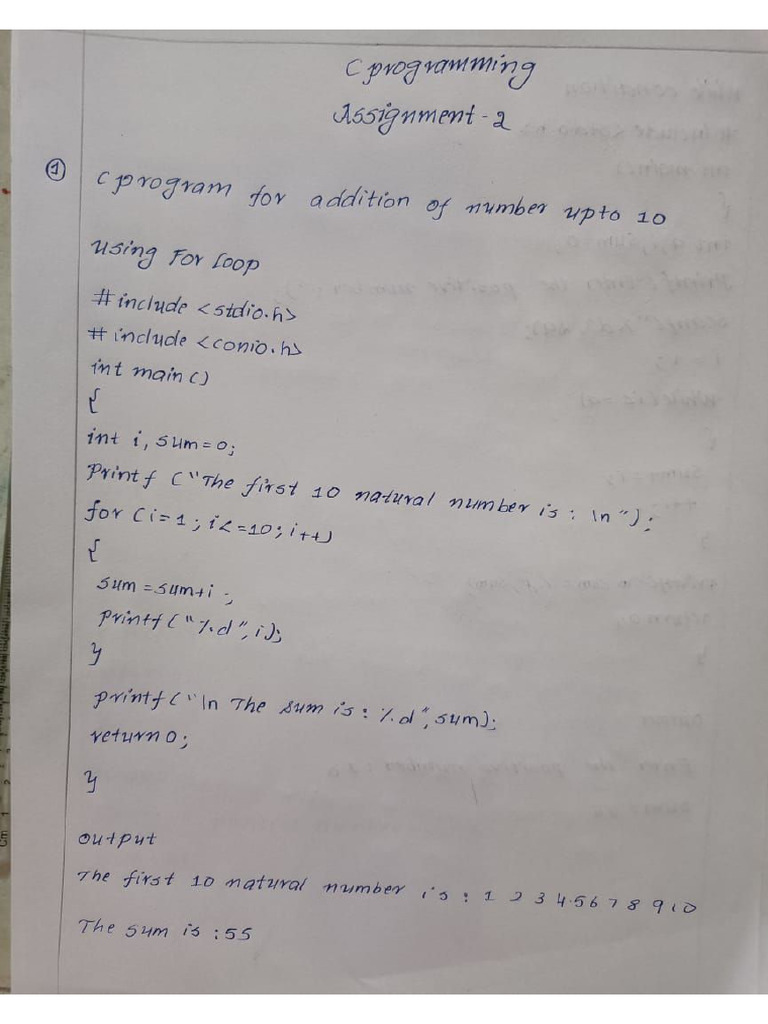 C programming
Assignment - 2
① C program for addition of number upto 10
using For Loop
#include <stdio.h>
#include <conio.h>
int main()
{
int i, sum=0;
Printf ("The first 10 natural number is : \n");
for (i=1; i<=10; i++)
{
sum = sum+i ;
printf ("%d", i);
}
printf("\n The sum is : %d", sum);
return 0;
}
output
The first 10 natural number is : 1 2 3 4 5 6 7 8 9 10
The sum is : 55